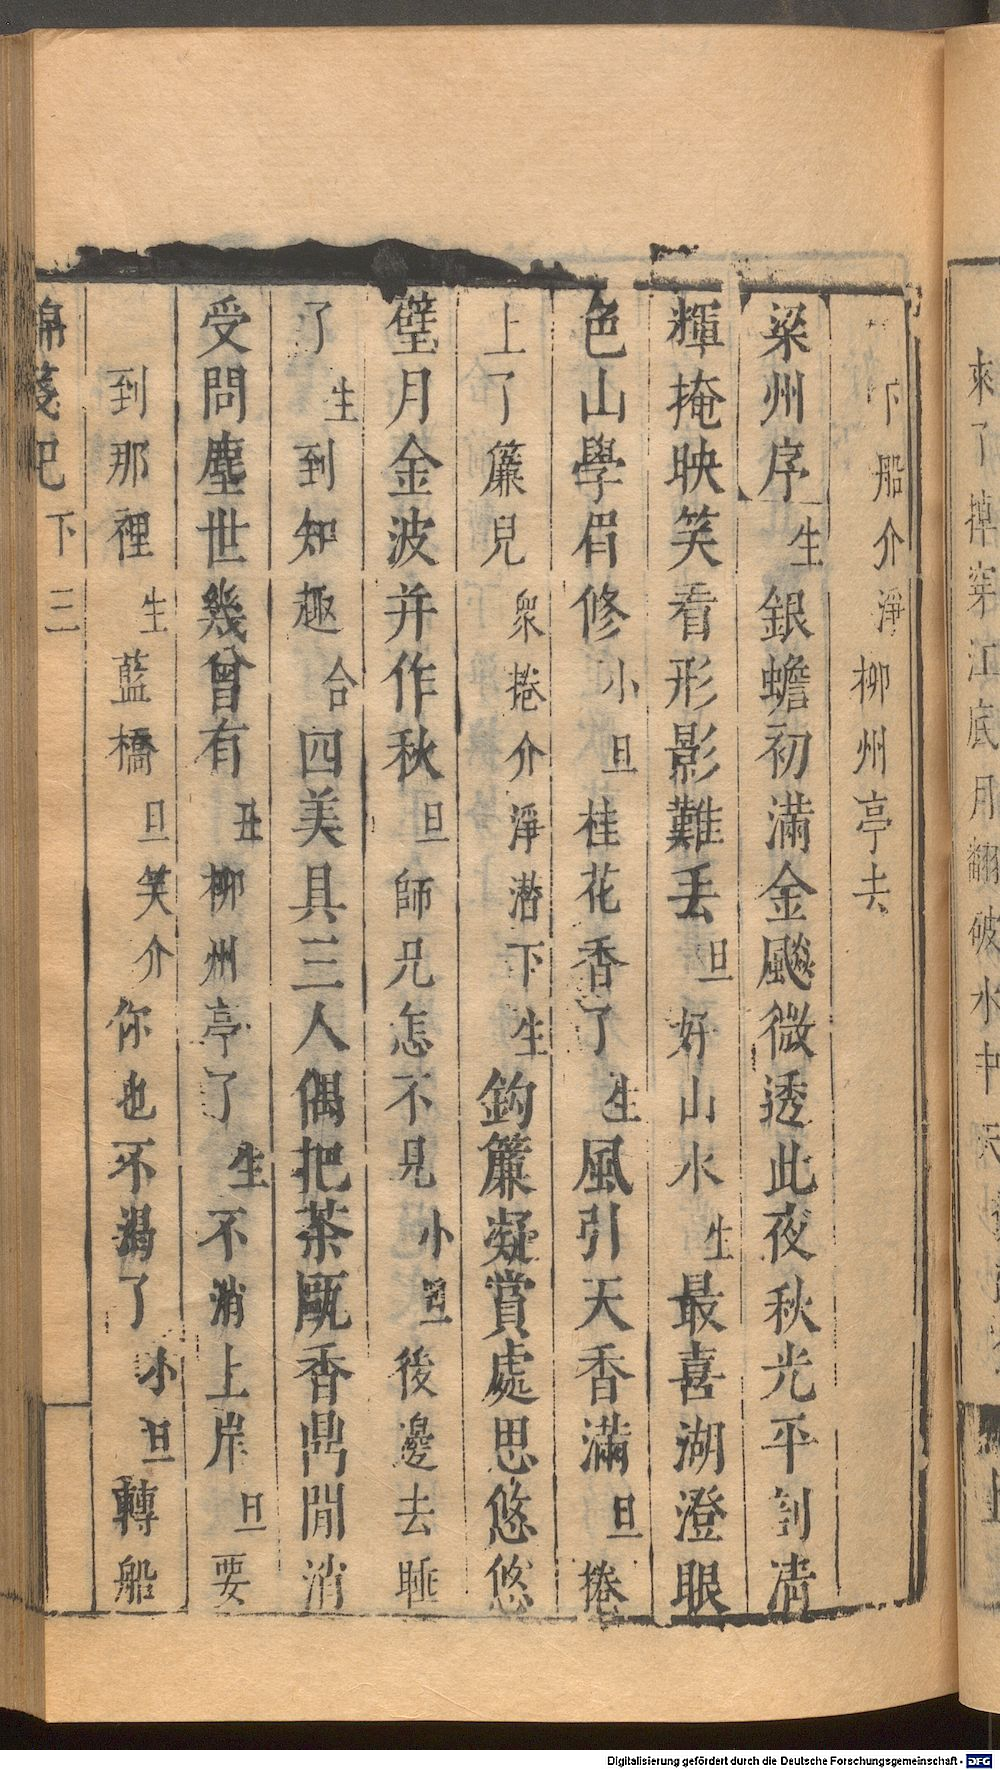 下船介淨柳州亭去
梁州序生銀蟾初滿金飈微透此夜秋光平剖凊
輝掩映笑看形影難丟旦好山水生最喜湖澄眼
色山學眉修小旦桂花香了生風引天香滿旦捲
上了簾兒眾捲介淨潛下生鈎簾凝賞處思悠悠
璧月金波并作秋旦師兄怎不見小旦後邊去睡
了生到知趣合四美具三人偶把茶甌香鼎閒消
受問塵世幾曾有丑柳州亭了生不消上岸旦要
到那裡生藍橋旦笑介你也不渴了小旦轉船
錦箋記 下 三
來了 江底月翻破水中天
Digitalisierung gefördert durch die Deutsche Forschungsgemeinschaft - DFG